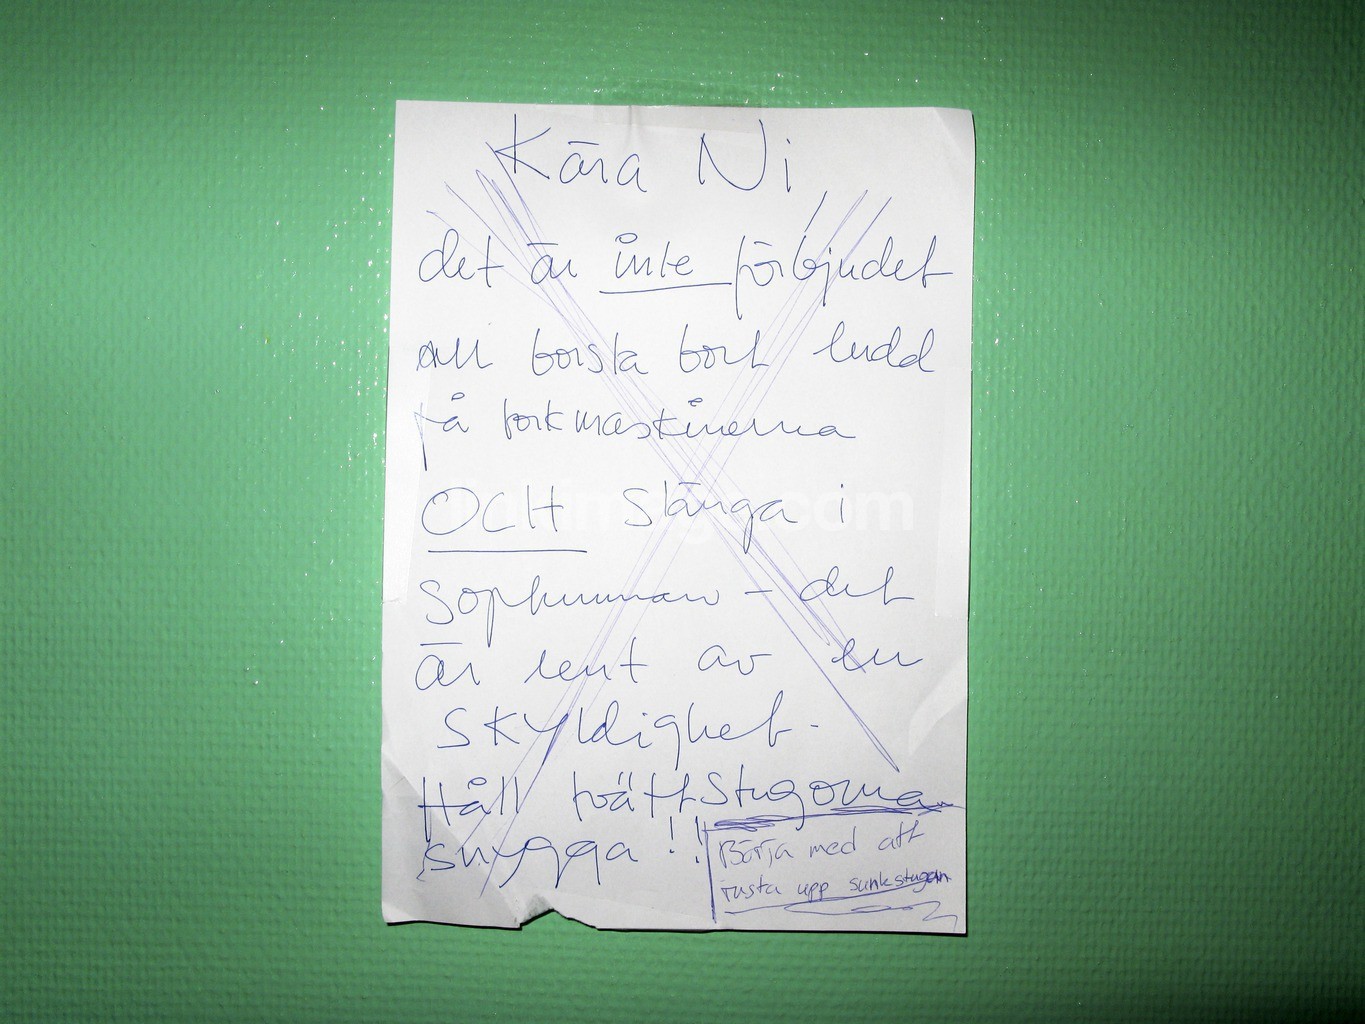 Kära Ni
det är inte förbjudet
att borsta bort ludd
på torkmaskinerna
OCH slänga i
sophinken - det
är rent av en
SKyldighet -
Håll tvättstugorna
snygga !!
Börja med att
rusta upp sunkstugan